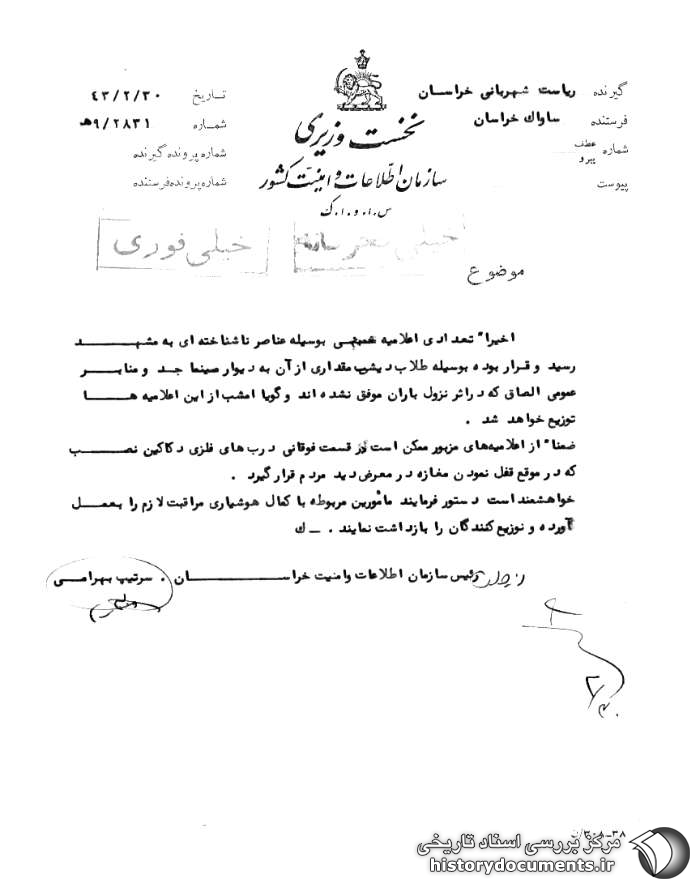 گیرنده ریاست شهربانی خراسان
فرستنده ساواک خراسان
شماره عطف
پیرو
پیوست
نخست وزیری
سازمان اطلاعات و امنیت کشور
س.ا.و.ا.ک
تاریخ ۴۳/۲/۳۰
شماره ۹/۲۸۳۱ﻫ
شماره پرونده گیرنده
شماره پرونده فرستنده
خیلی محرمانه
خیلی فوری
موضوع
اخیراً تعدادی اعلامیه خمینی بوسیله عناصر ناشناخته ای به مشهد
رسید و قرار بوده بوسیله طلاب دیشب مقداری از آن به دیوار صینما جد و منابر
عمومی الصاق که در اثر نزول باران موفق نشده اند و گویا امشب از این اعلامیه ها
توزیع خواهد شد .
ضمناً از اعلامیه‌های مزبور ممکن است در قسمت فوقانی درب های فلزی دکاکین نصب
که در موقع قفل نمودن مغازه در معرض دید مردم قرار گیرد .
خواهشمند است دستور فرمایند مأمورین مربوطه با کمال هوشیاری مراقبت لازم را بعمل
آورده و توزیع کنندگان را بازداشت نمایند . ـ ک
رئیس سازمان اطلاعات و امنیت خراسان . سرتیپ بهرامی
مرکز بررسی اسناد تاریخی
historydocuments.ir